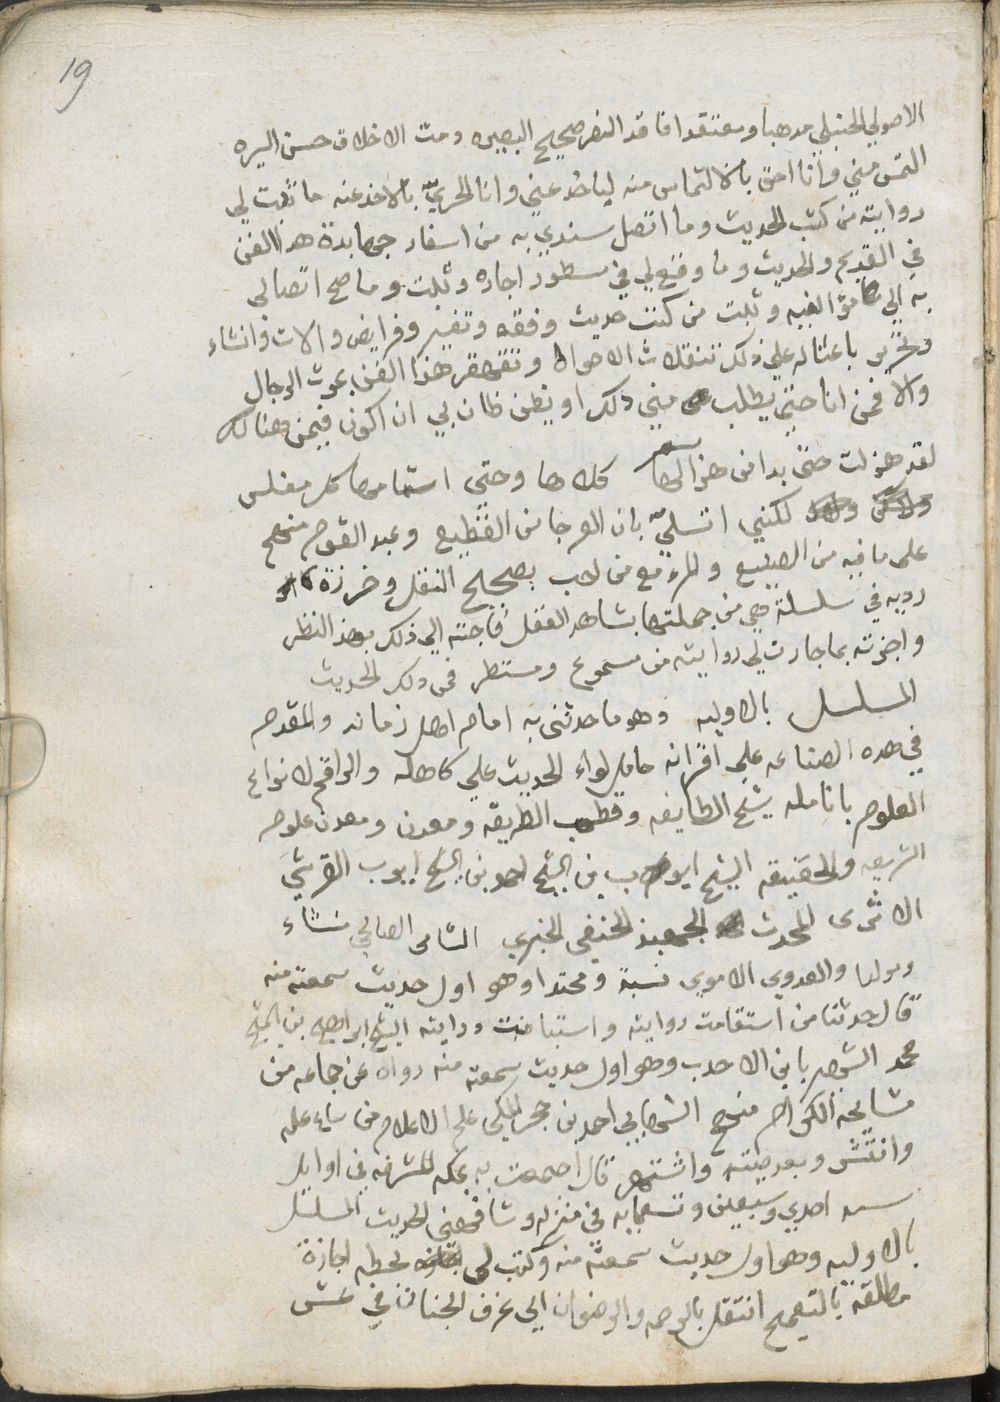 19
الاصولي الحنبلي مدهبا ومعتقدا فاقد النضر صحيح البصيره ومت الاخلاق حسن السيره
التمس مني وانا احق بالالتماس منه لياخد عني وانا الحري بالاخد عنه ما ثبت لي
روايته من كتب الحديث وما اتصل سندي به من اسفار جهابدة هدا الفن
في القديم والحديث وما وقع لي في سطور اجازه وثبت وما صح اتصالي
به الي مؤالفيه وثبت من كتب حديث وفقه وتفسير وفرايض والات وانشاء
وتحرير باعثا له علي ذلك تنقلات الاحوال وتقهقر هذا الفن بموت الرجال
والا فمن انا حتي يطلب مني دلك او يظن ظان بي ان اكون فيمن هنالك
لقد هزلت حتى بدا من هزالها كلاها وحتي استامها كل مفلس
لكنني اتسلي بان العرجا من القطيع وعبد القوم منهم
علي ما فيه من الصنيع والمرء مع من احب بصحيح النقل وخرزة
رديه في سلسلة هي من جملتها بشاهد العقل فاجبته الي ذلك بهذ النظر
واجزته بما جازت لي روايته من مسموع ومستطر فمن دلك الحديث
المسلسل بالاوليه وهو ما حدثني به امام اهل زمانه والمقدم
في هده الصناعه علي اقرانه حامل لواء الحديث علي كاهله والراقم لانواع
العلوم بانامله شيخ الطايفه وقطب الطريقه ومعدن ومعدن علوم
الشريعه والحقيقه الشيخ ايوب بن الشيخ احمد بن الشيخ ايوب القرشي
الاثرى المحدث الجهبذ الحنفي الخبري الشامى الصالحي منشاء
ومولدا والعدوي الاموي نسبة ومحتدا وهو اول حديث سمعته منه
قال حدثنا من استقامت روايته واستبانت درايته الشيخ ابراهيم بن الشيخ
محمد الشهير بابن الاحدب وهو اول حديث سمعته منه رواه عن جماعه من
مشايخه الكرام منهم الشهابي احمد بن حجر المكي علم الاعلام من شاع علمه
وانتشر وبعد صيته واشتهر قال اجتمعت به بمكه المشرفه في اوايل
سنه احدي وسبعين وتسعمايه في منزله وشافهني الحديث المسلسل
بالاوليه وهو اول حديث سمعته منه وكتب لي بخطه اجازة
مطلقة بالتعميم انتقل بالرحمه والرضوان الي غرف الجنان في عشر